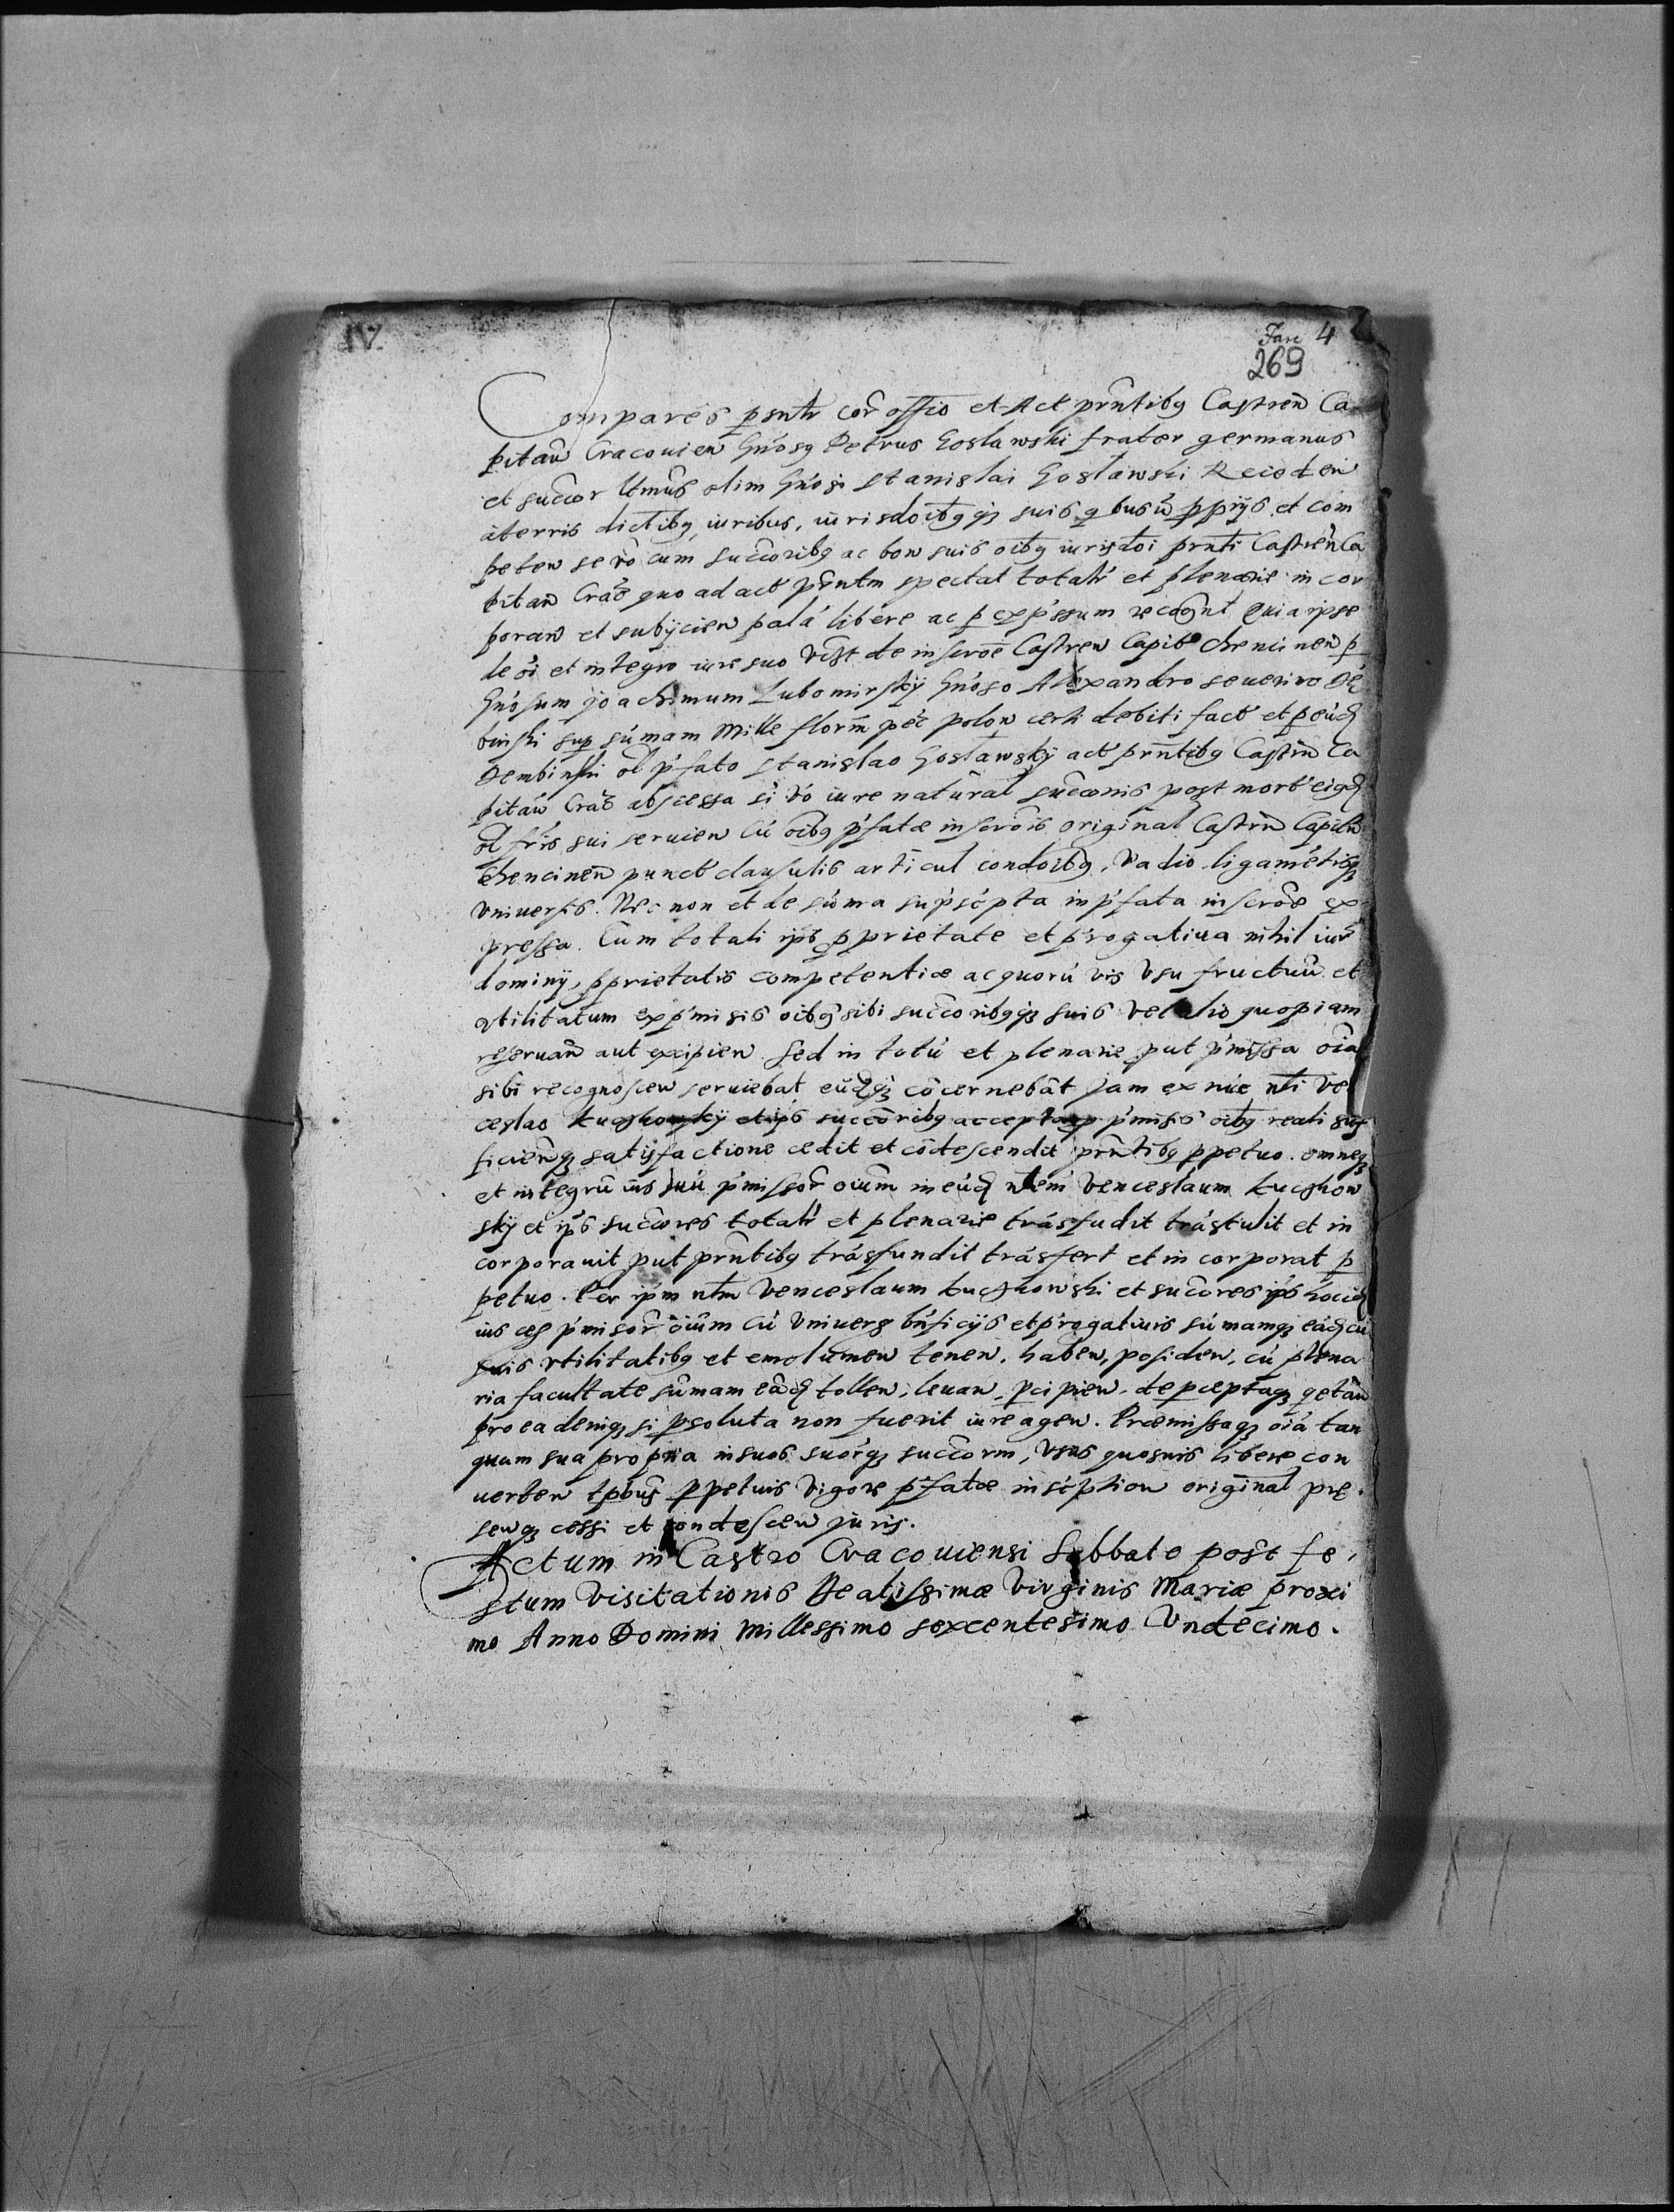 IV.
Fasc 4
269
Compareñs psntr cor offio et Act prntibq Castreñ Ca
pitañ Cracouien Gnosq Petrus Goslawski frater germanus
et succor ltmus olim Gnosi Stanislai Goslawski Recideñ
aterris dictibq, iuribus, iurisdoibqqз suis qbusu pprijs et com
peten se vo cum succoribq ac bon suis oibq iurisdoi prnti Castreñ Ca
pitañ Crac quo ad act pñtm spectat totalr et plenarie incor
porañ et subijcien palá libere ac p expssum recognt Quia ipse
de oi et integro iure suo vigt de inscroe Castren Capit Chencineñ p
Gnosum joachimum Lubomirskij Gnoso Alexandro seuerino Dę
binski sup súmam Mille florm pec polon certi debiti fact et p eúd
Dembinski ol pfato Stanislao Goslawskij act prntibq Castreñ Ca
pitañ Crac abscessa si vo iure natural succonis post mort eiqd
ol fris sui seruien Cú oibq pfatæ inscrois original Castreñ Capitñ
Chencineñ punct clausulis articul condoibq, vadio ligamétisqз
vniuersis. Nec non et de súma supscpta in pfata inscroe ex
pressa. Cum totali ips pprietate et progatiua nihil iur
dominij, pprietatis competentiæ ac quorú vis vsu fructuu et
vtilitatum ex pmisis oibq sibi succoribqqз suis vel alio quopiam
reseruañ aut excipien. Sed in totú et plenarie put pmissa oia
sibi recognoscen seruiebat eúdqз cócernebat jam ex núc nti Ve
ceslao Kuchowskij et ips succoribq accepta p pmisis oibq reali suf
ficienqз satisfactione cedit et códescendit prntibq ppetuo. omneqз
et integrú ius suú pmissor oium in eúd ntem Venceslaum Kuchow
skij et ips succores totalr et plenarie trásfudit trástulit et in
corporauit put prntibq trásfundit trásfert et incorporat p
petuo. Per ipm ntm Venceslaum Kuchowski et succores ips hocid
ius ces pmisor oium Cú vniuers bnficijs et progatiuis súmamqз eád cú
suis vtilitatibq et emolumen tenen, haben, posiden, cú plena
ria facultate súmam eád tollen, leuan, pcipien, de pceptaqз qetañ
pro eademqз si psoluta non fuerit iure agen. Præmissaqз oia tan
quam sua propria in suos suorqз succorm, vsus quosuis libere con
uerten tpbus ppetuis vigore pfatæ inscption original præ
senqз cessi et condescen juris.
Actum in Castro Cracouiensi Sabbato post fe,
stum Visitationis Beatissimæ Virginis Mariæ proxi
mo Anno Domini Millessimo sexcentesimo Vndecimo.